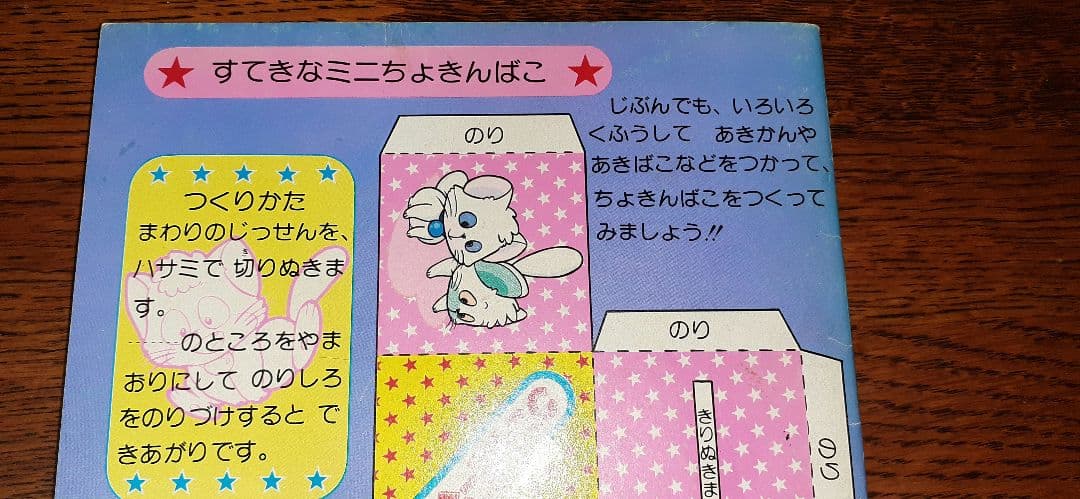 ★ すてきなミニちょきんばこ ★
じぶんでも、いろいろ
くふうして あきかんや
あきばこなどをつかって、
ちょきんばこをつくって
みましょう!!
つくりかた
まわりのじっせんを、
ハサミで切りぬきま
き
す。
------のところをやま
おりにして のりしろ
をのりづけすると で
きあがりです。
のり
のり
のり
きりぬきま